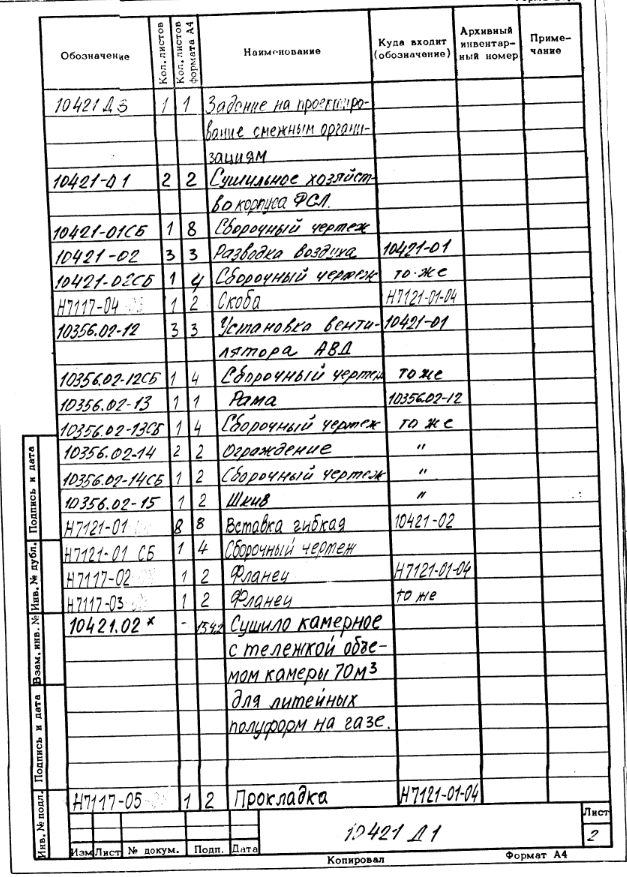 Обозначение Кол. листов Кол. листов формата А4 Наименование Куда входит (обозначение) Архивный инвентарный номер Примечание
10421 Д3 1 1 Задание на проектиро-
вание смежным органи-
зациям
10421-01 2 2 Сушильное хозяйст-
во корпуса ФСЛ.
10421-01СБ 1 8 Сборочный чертеж
10421-02 3 3 Разводка воздуха 10421-01
10421-02СБ 1 4 Сборочный чертеж то же
Н7117-04 1 2 Скоба Н7121-01-04
10356.02-12 3 3 Установка венти- 10421-01
лятора АВД
10356.02-12СБ 1 4 Сборочный чертеж то же
10356.02-13 1 1 Рама 10356.02-12
10356.02-13СБ 1 4 Сборочный чертеж то же
10356.02-14 2 2 Ограждение "
10356.02-14СБ 1 2 Сборочный чертеж
10356.02-15 1 2 Шкив "
Н7121-01 8 8 Вставка гибкая 10421-02
Н7121-01 СБ 1 4 Сборочный чертеж
Н7117-02 1 2 Фланец Н7121-01-04
Н7117-03 1 2 Фланец то же
10421.02* - Сушило камерное
с тележкой объе-
мом камеры 70м³
для литейных
полуформ на газе.
Н7117-05 1 2 Прокладка Н7121-01-04
Подпись и дата
Инв. № дубл.
Взам. инв. №
Подпись и дата
Инв. № подл.
Изм Лист № докум. Подп. Дата
10421 Д1
Лист
2
Копировал Формат А4